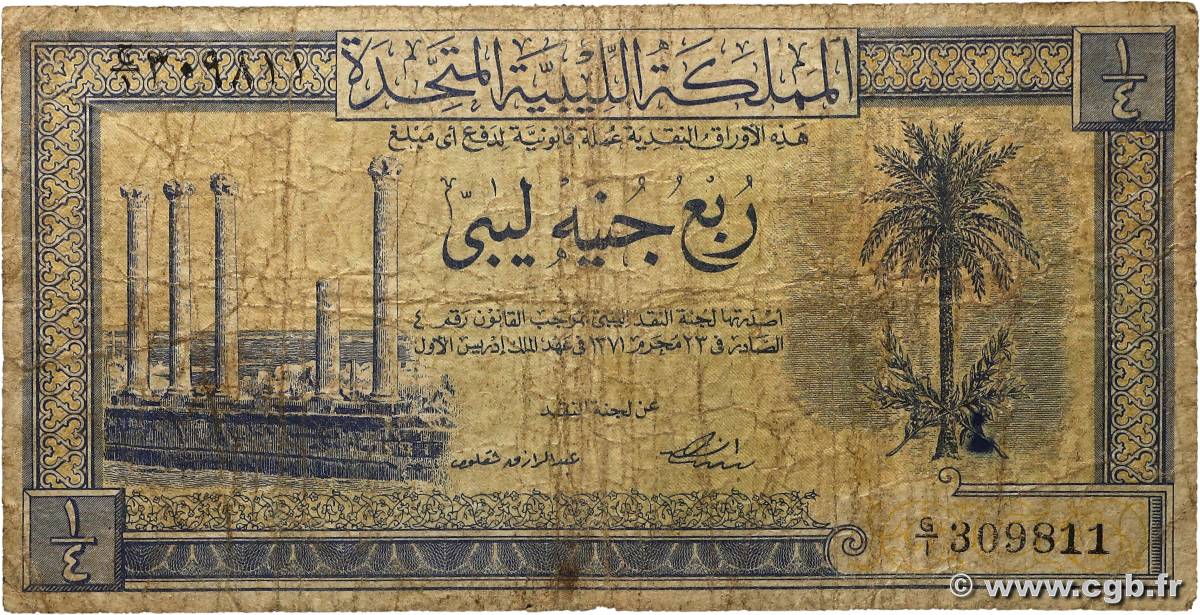 المملكة الليبية المتحدة
١/٤
ج/١ ٣٠٩٨١١
هذه الأوراق النقدية عملة قانونية لدفع أى مبلغ
ربع جنيه ليبى
أصدرتها لجنة النقد الليبى بموجب القانون رقم ٤
الصادر فى ٢٣ محرم ١٣٧١ فى عهد الملك إدريس الأول
عن لجنة النقد
عبد الرازق شقلوف
١/٤
G/1 309811
© www.cgb.fr